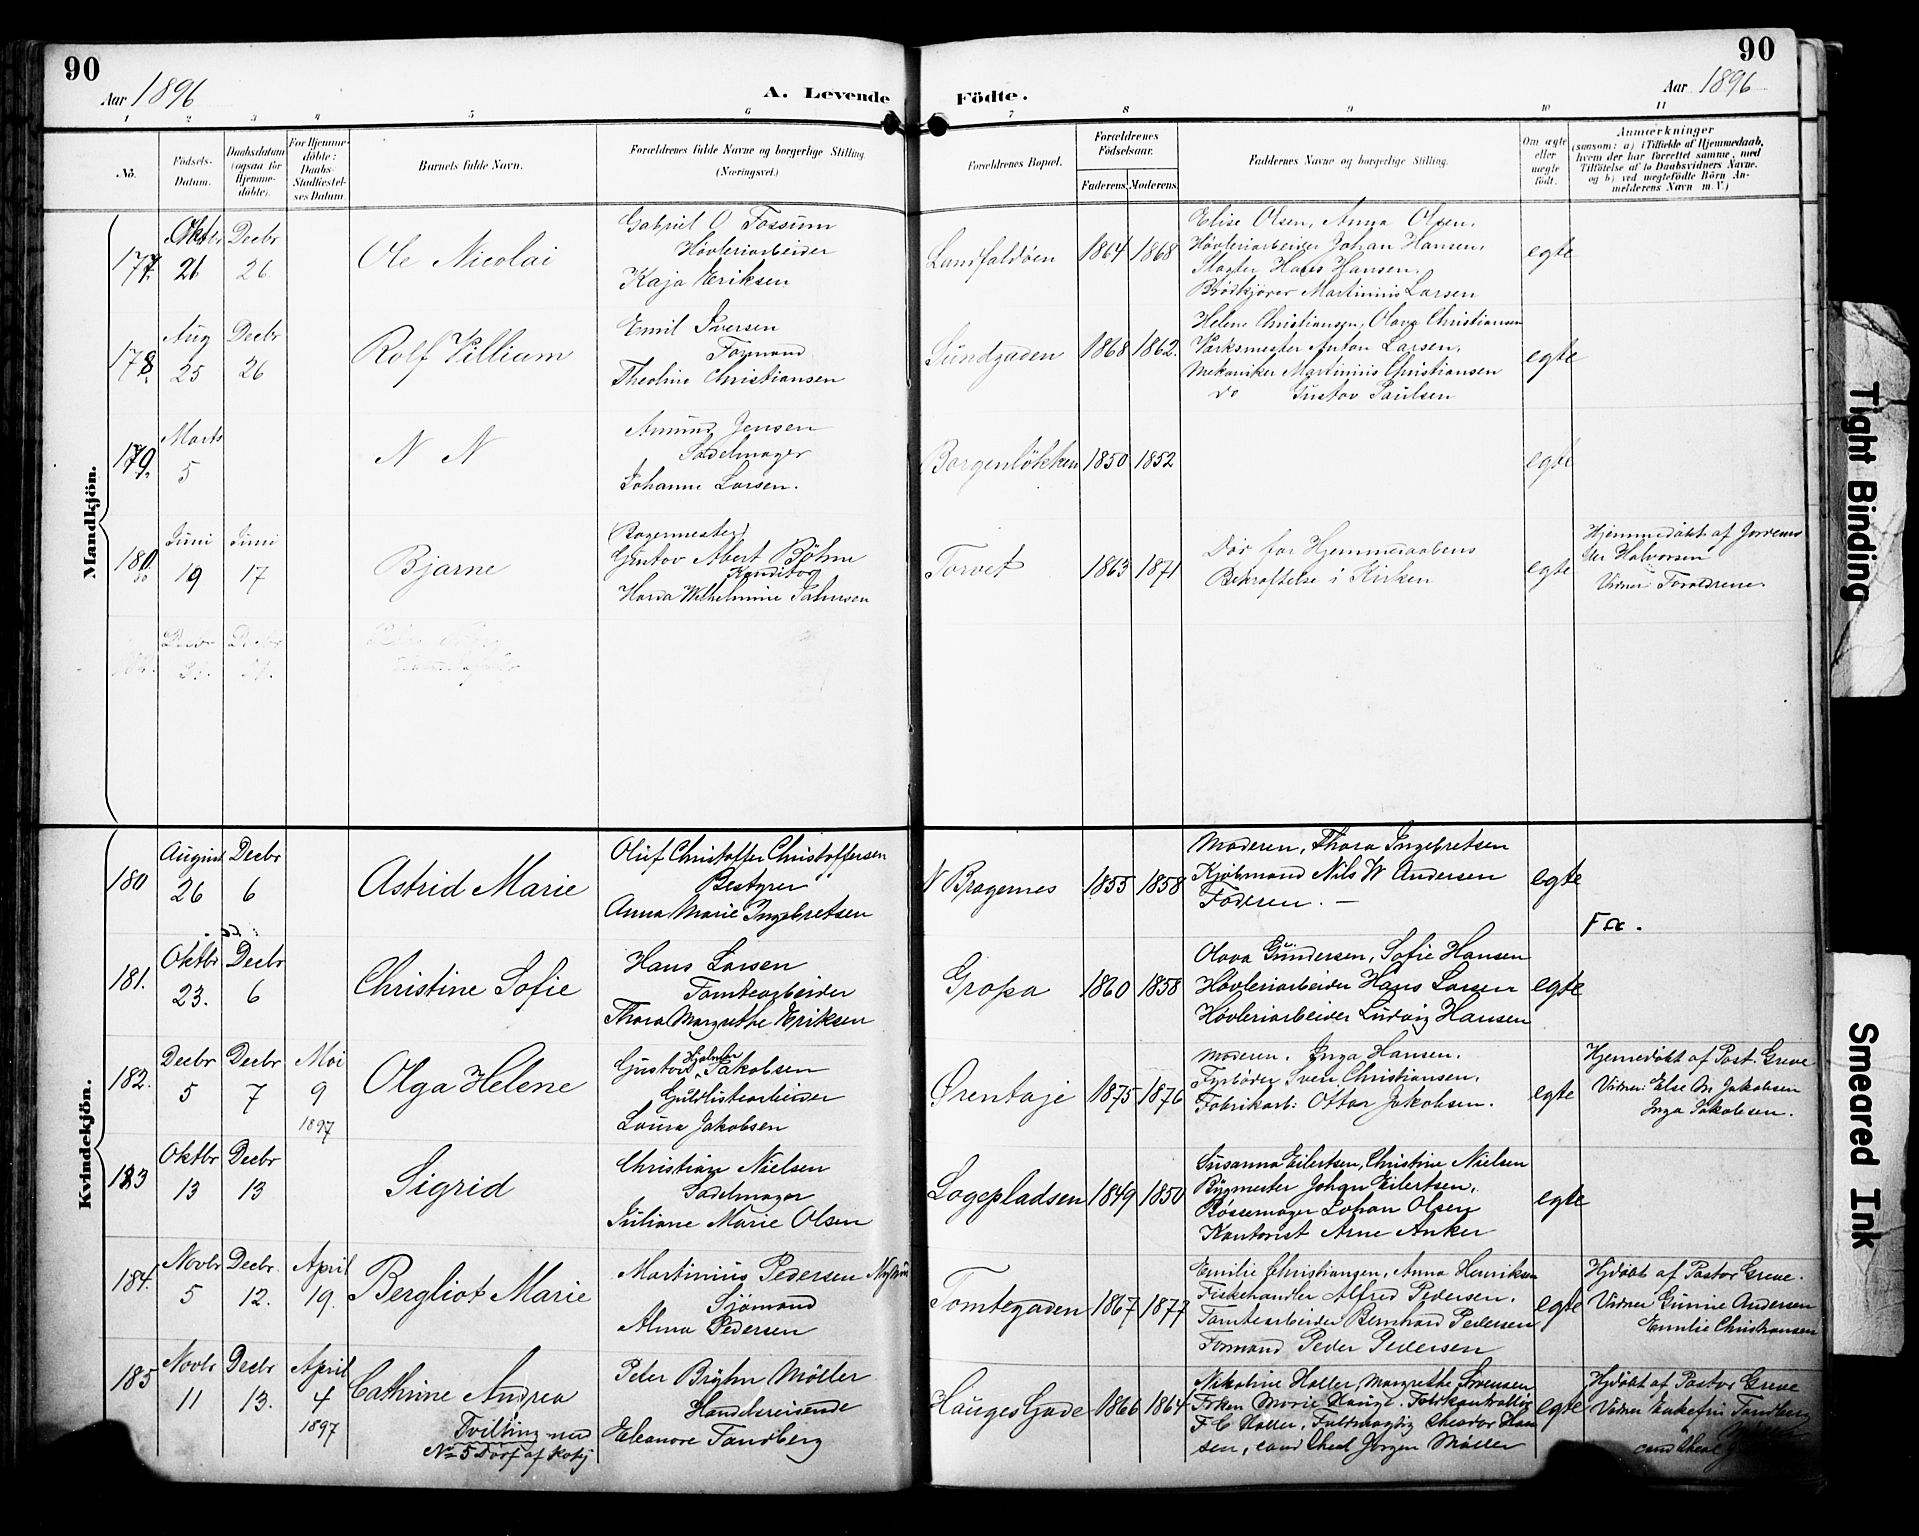 90
90
Aar 1896
A. Levende Födte.
Aar 1896
1 2 3 4 5 6 7 8 9 10 11
No.
Födsels-Datum.
Daabsdatum (ogsaa for Hjemmedöbte).
For Hjemmedöbte: Daabs-Stadfæstelses Datum.
Barnets fulde Navn.
Forældrenes fulde Navne og borgerlige Stilling. (Næringsvei.)
Forældrenes Bopæl.
Forældrenes Födselsaar.
Faderens. Moderens.
Faddernes Navne og borgerlige Stilling.
Om ægte eller uægte födt.
Anmærkninger
(saasom: a) i Tilfælde af Hjemmedaab, hvem der har forrettet samme, med Tilföielse af to Daabsvidners Navne, og b) ved uægtefödte Börn Anmelderens Navn m. V.)
Mandkjön.
177. Oktbr 26 Decbr 26
Ole Nicolai
Gabriel O Fossum
Høvleriarbeider
Kaja Eriksen
Landfaldøen 1864 1868
Elise Olsen, Anna Olsen,
Høvleriarbeider Johan Hansen,
Slagter Hans Hansen.
Brødkjører Martinius Larsen
egte
178. Aug 25 Decbr 26
Rolf Villiam
Emil Iversen
Formand
Theoline Christiansen
Sundgaden 1868 1862.
Helene Christiansen, Olava Christiansen
Værksmester Anton Larsen,
Mekaniker Martinius Christiansen
do Gustav Paulsen
egte
179. Marts 5
N N
Amund Jensen
Sadelmager
Johanne Larsen.
Borgenløkken 1850 1852
egte
180. Juni 19 Juni 17
Bjarne
Bagermester
Gustav Albert Böhm
Konditor
Harda Wilhelmine Salmsen
Torvet 1863 1871
Døv før Hjemmedaabens
Bekræftelse i Kirken
egte
Hjemmedøbt af Jordemor
Halvorsen
Vidner Forældrene.
Kvindekjön.
180 August 26 Decbr 6
Astrid Marie
Oluf Christoffer Christoffersen
Bestyrer
Anna Marie Ingebretsen
N Bragernes 1855 1858
Moderen, Thora Ingebretsen
Kjøbmand Nils W Andersen
Faderen. —
egte
Fx.
181. Oktbr 23. Decbr 6
Christine Sofie
Hans Larsen
Tomtearbeider
Thora Margrethe Eriksen
Gropa 1860 1858
Olava Gundersen, Sofie Hansen
Høvleriarbeider Hans Larsen
Høvleriarbeider Ludvig Hansen
egte
182. Decbr 5 Decbr 7 Mai 9 1897
Olga Helene
Gustav Hjalmar Jakobsen
Guldlistearbeider
Laura Jakobsen
Ørentaje 1875 1876
Moderen, Inga Hansen.
Fyrbøder Sven Christiansen,
Fabrikarb: Ottar Jakobsen.
egte
Hjemedøbt af Past. Greve
Vidner: Else M Jakobsen
Inga Jakobsen.
183 Oktbr 13 Decbr 13
Sigrid
Christian Nielsen
Sadelmager
Juliane Marie Olsen
Løgepladsen 1849 1850
Susanna Eilertsen, Christine Nielsen
Bygmester Johan Eilertsen,
Bøssemager Johan Olsen
Kontorist Arne Anker
egte
184. Novbr 5 Decbr. 12. April 19.
Bergliot Marie
Martinius Pedersen
Sjømand
Alma Pedersen
Tomtegaden 1867 1877
Emilie Christiansen, Anna Henriksen
Fiskehandler Alfred Pedersen,
Tomtearbeider Bernhard Pedersen
Formand Peder Pedersen
egte
Hjdøbt af Pastor Greve.
Vidner Gunnie Andersen
Emilie Christiansen
185 Novbr 11 Decbr 13. April 4 1897
Cathrine Andrea
Tvilling med
No 5 Dørf af
Peter Bryhn Möller
Handelsreisende
Eleanore Tandberg
Hauges Gade 1866 1864
Nikoline Møller, Margrethe Sørensen
Frken Marie Hauge. Toldkontrollør
F C Møller, Fuldmægtig Theodor Han
sen, cand theol Jørgen Møller
egte
Hjdøbt af Pastor Greve
Vidner Enkefru Tandberg
cand theol
Tight Binding
Smeared Ink